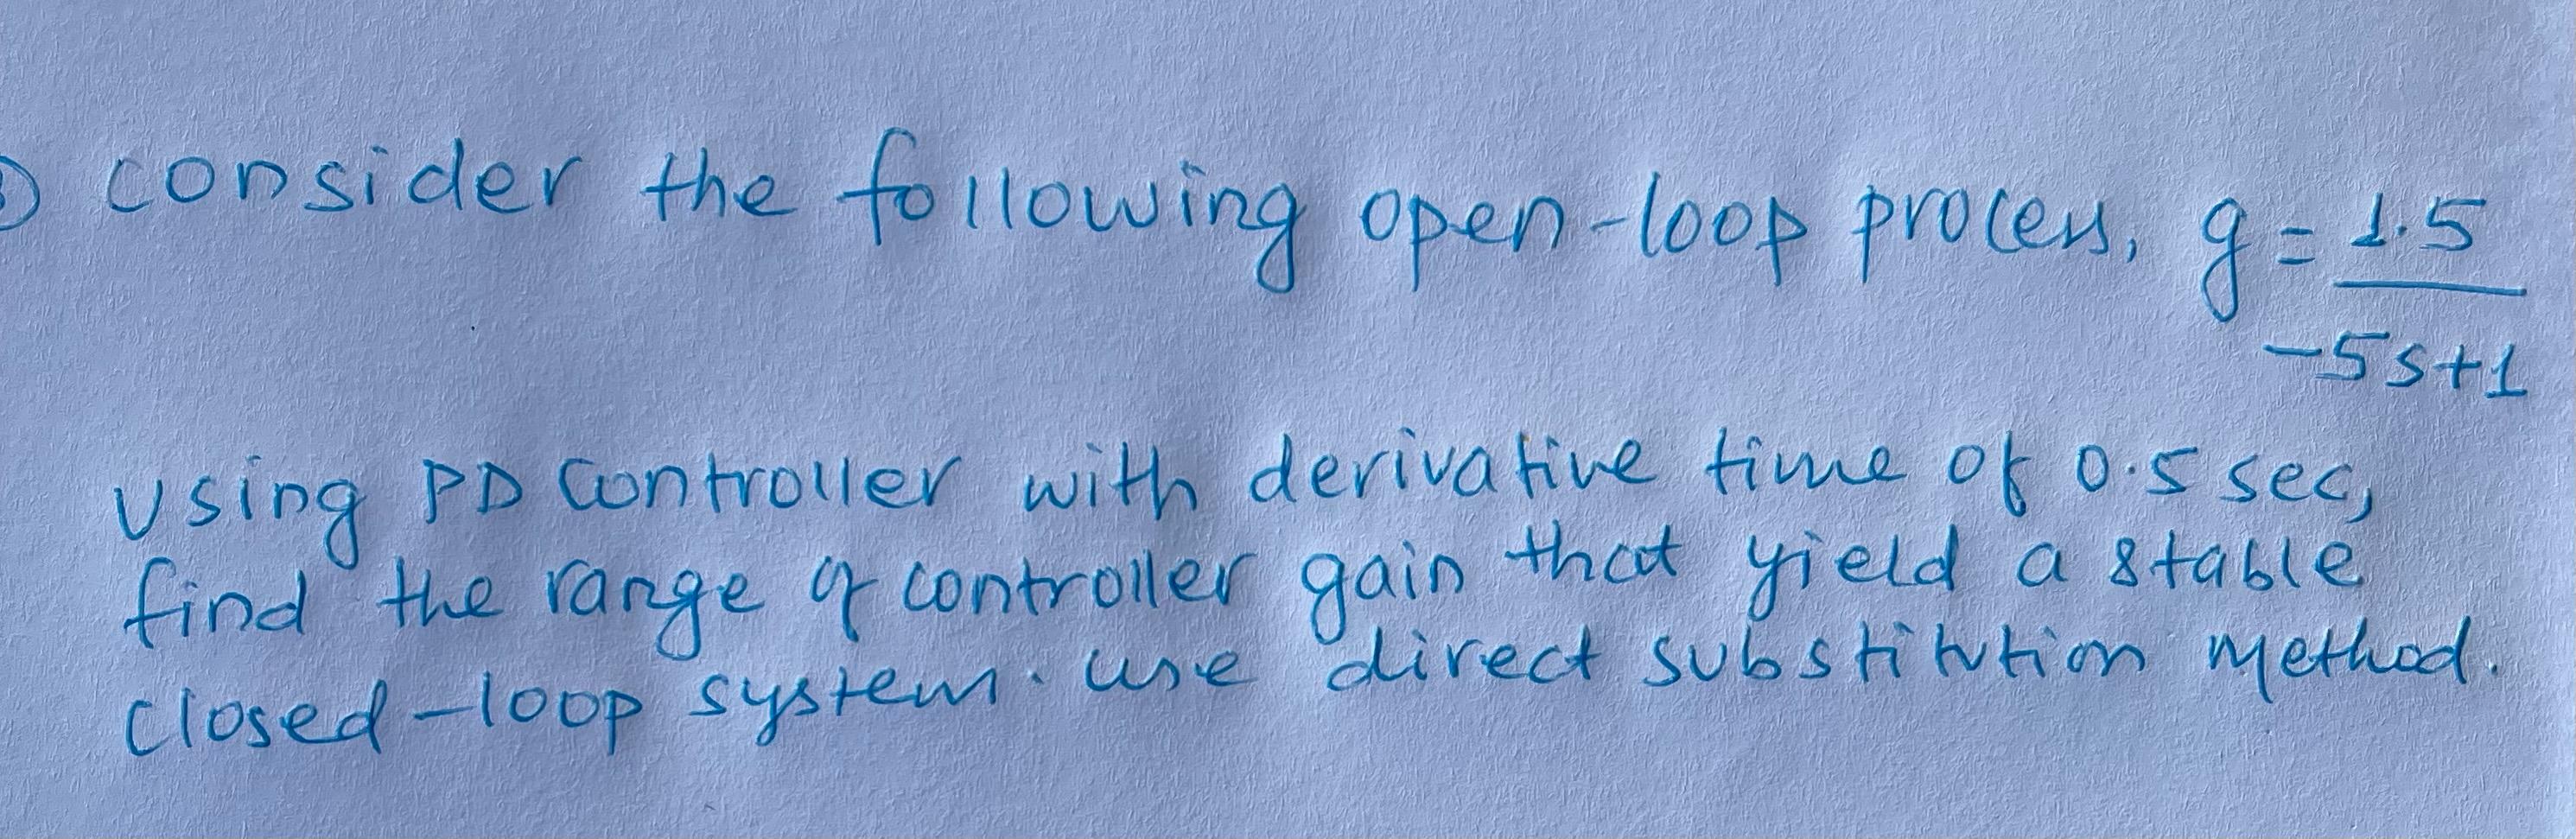 consider the following open-loop process, g = 1.5
-5s+1
Using PD controller with derivative time of 0.5 sec,
find the range of controller gain that yield a stable
closed-loop system. use direct substitution method.